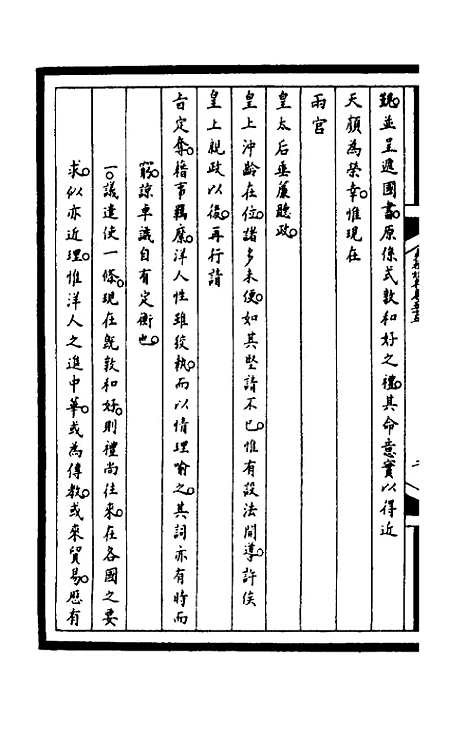 覲。並呈遞國書。原係式敦和好之禮。其命意實以得近
天顏為榮幸。惟現在
兩宮
皇太后垂簾聽政。
皇上沖齡在位。諸多未便。如其堅請不已。惟有設法開導。許俟
皇上親政以後。再行請
旨定奪。藉事羈縻。洋人性雖狡執。而以情理喻之。其詞亦有時而
窮。諒卓識自有定衡也。
一。議遣使一條。現在既敦和好。則禮尚往來。在各國之要
求。似亦近理。惟洋人之進中華。或為傳教。或來貿易。應有